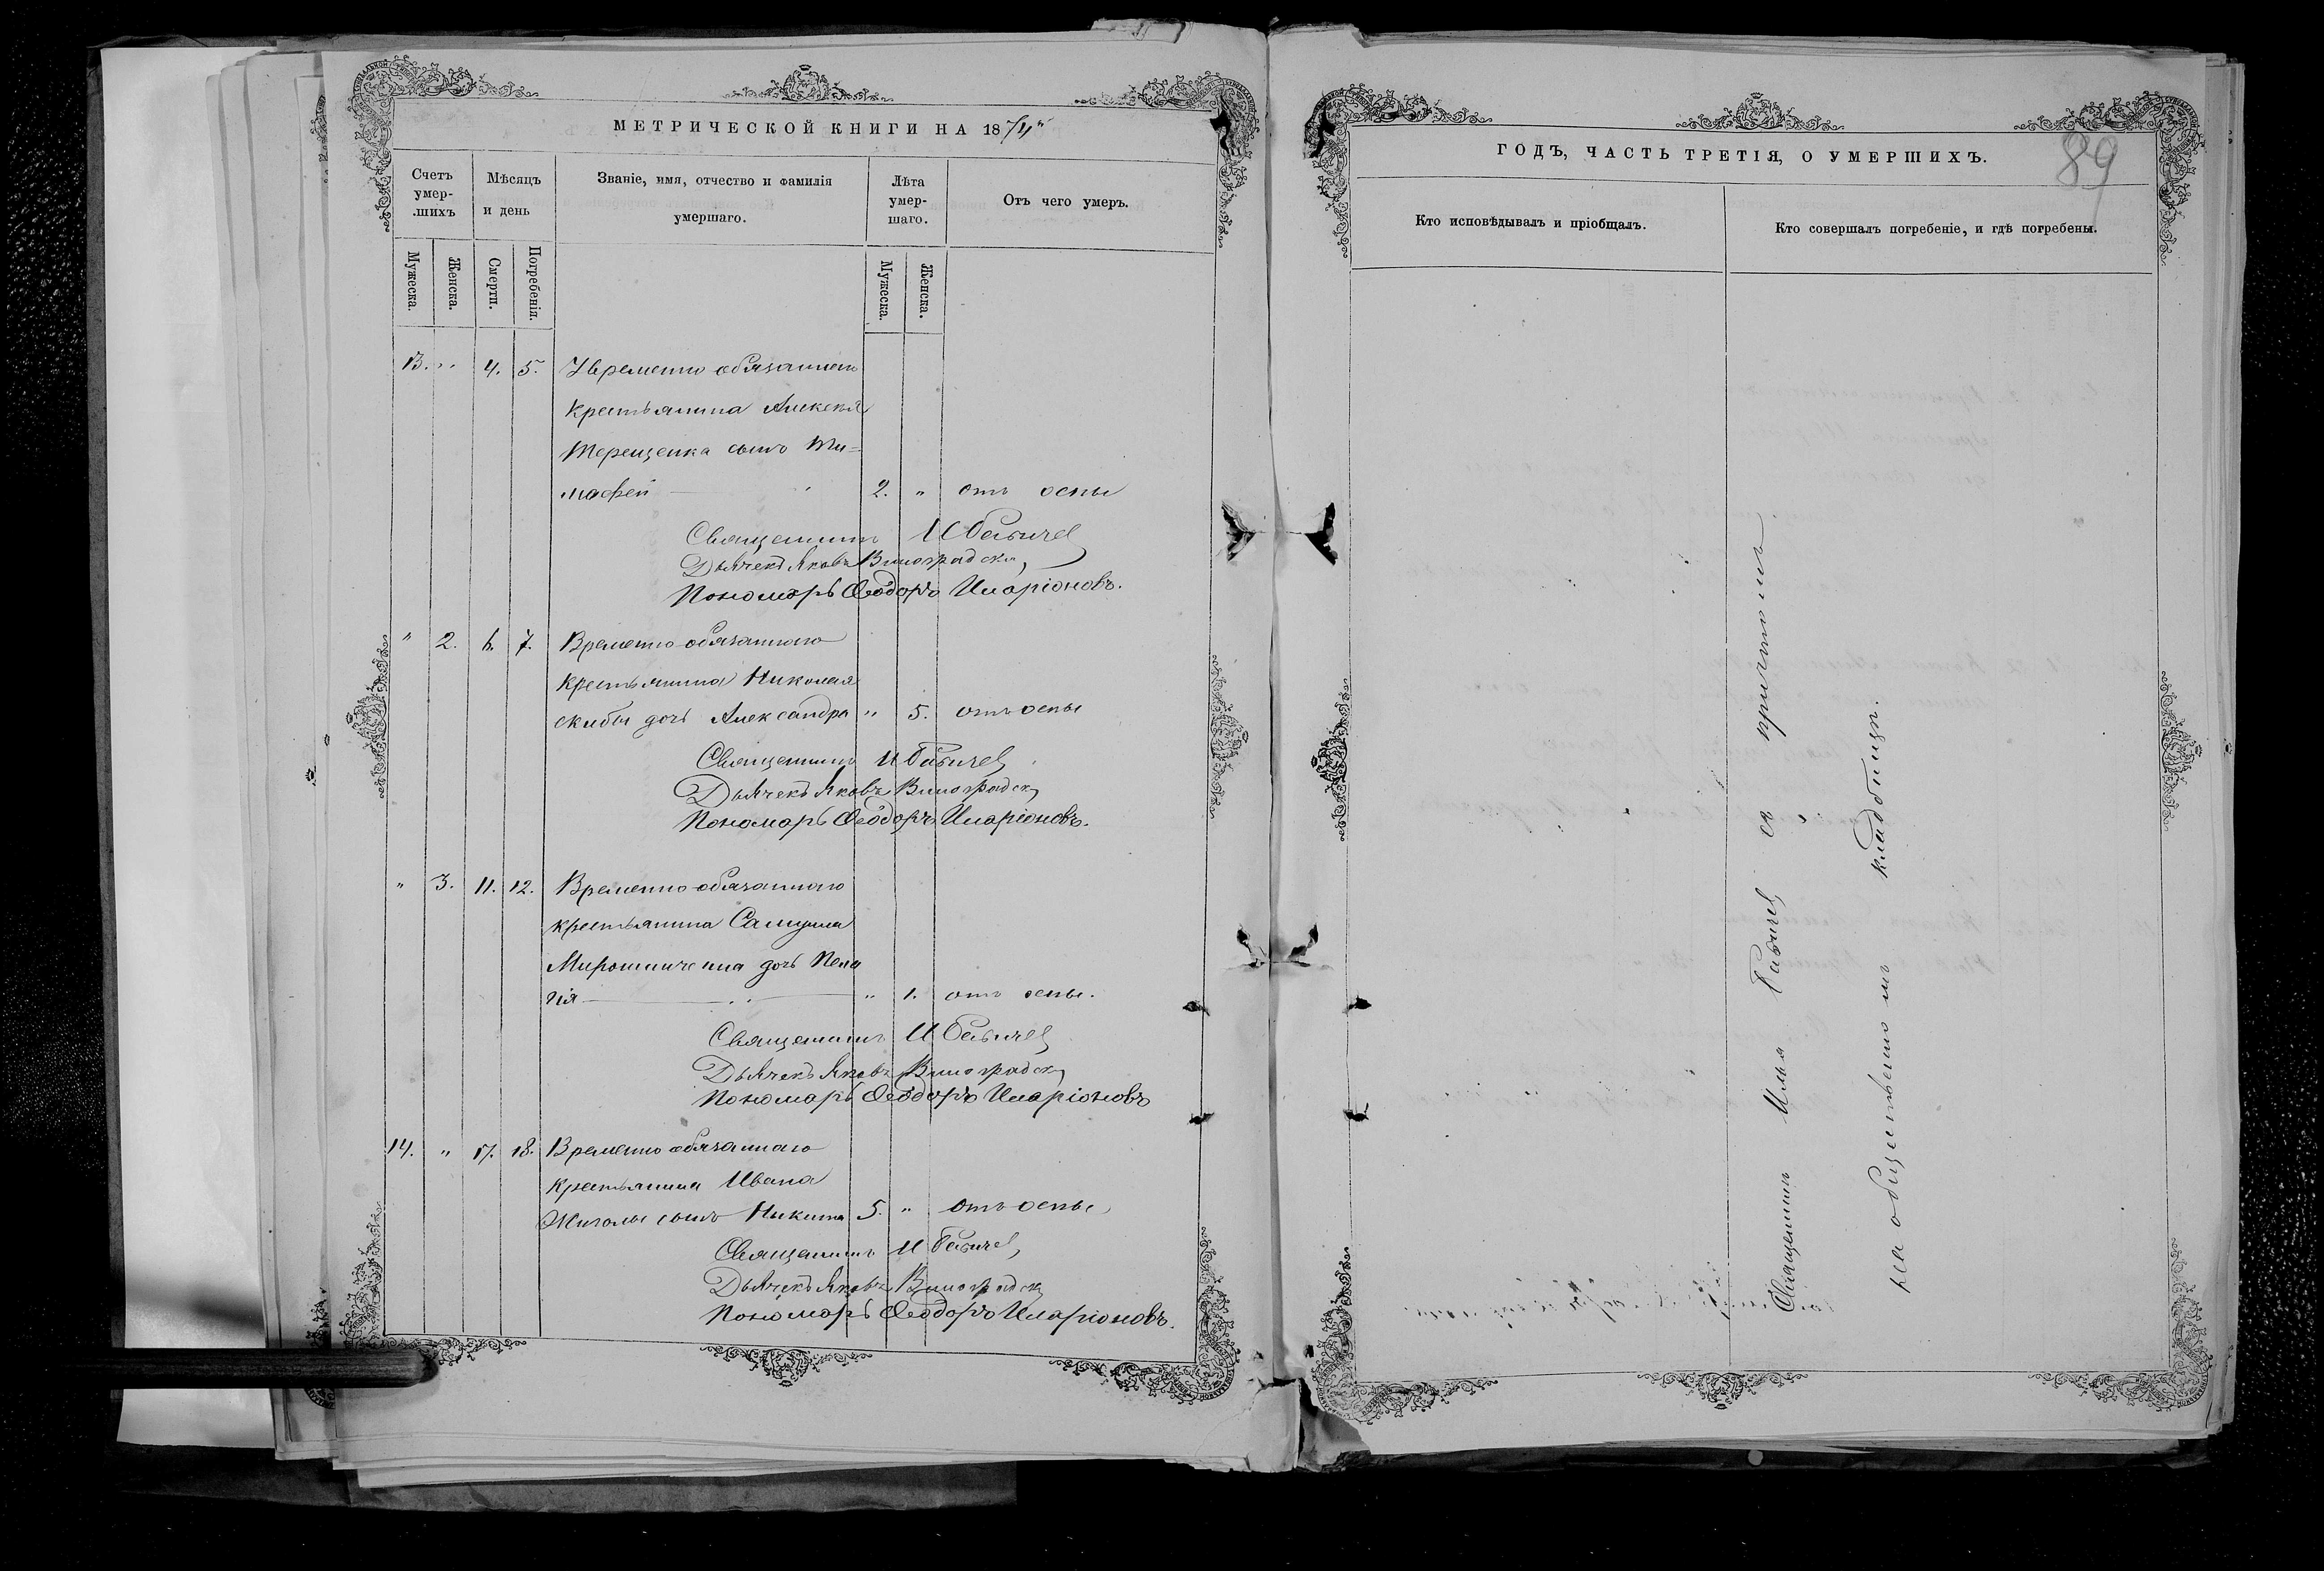 МЕТРИЧЕСКОЙ КНИГИ НА 1874
Счетъ умер-шихъ
Мѣсяцъ и день
Званіе, имя, отчество и фамилія умершаго.
Лѣта умер-шаго.
Отъ чего умеръ.
Мужеска.
Женска.
Смерти.
Погребенія.
Мужеска.
Женска.
13. " 4. 5. Временно обязаннаго
крестьянина Алексѣя
Терещенка сынъ Ти=
мофей 2. " отъ оспы
Священникъ И Бабичев
Дьячекъ Яковъ Виноградскі
Пономарь Ѳеодоръ Иларіоновъ.
" 2. 6. 7. Временно-обязаннаго
крестьянина Николая
Скибы дочь Александра " 5. отъ оспы
Священникъ И Бабичев
Дьячекъ Яковъ Виноградск
Пономарь Ѳеодоръ Иларіоновъ.
" 3. 11. 12. Временно-обязаннаго
крестьянина Самуила
Мирошниченка дочь Пела
гія " 1. отъ оспы.
Священникъ И Бабичев
Дьячекъ Яковъ Виноградск
Пономарь Ѳеодоръ Иларіоновъ
14. " 17. 18. Временно обязаннаго
крестьянина Ивана
сынъ Никита 5. " отъ оспы
Священникъ И Бабичев
Дьячекъ Яковъ Виноградск
Пономарь Ѳеодоръ Иларіоновъ.
89
ГОДЪ, ЧАСТЬ ТРЕТІЯ, О УМЕРШИХЪ.
Кто исповѣдывалъ и пріобщалъ.
Кто совершалъ погребеніе, и гдѣ погребены.
Священникъ Илья Бабичев съ причтомъ
на общественномъ кладбищѣ.